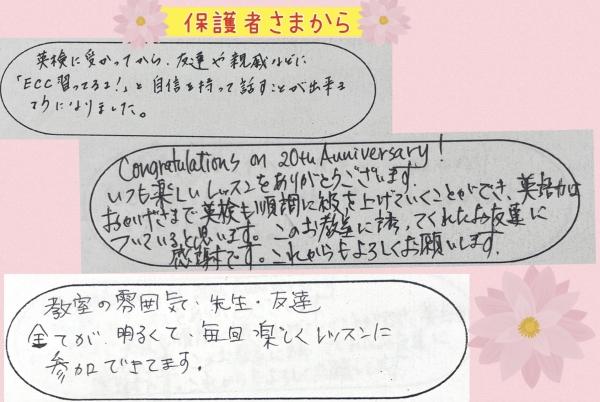 保護者さまから
英検に受かってから、友達や親戚などに
「ECC習ってるよ!」と自信を持って話すことが出来る
ようになりました。
Congratulations on 20th Anniversary!
いつも楽しいレッスンをありがとうございます。
おかげさまで英検も順調に級を上げていくことができ、英語力は
ついていると思います。このお教室に誘ってくれたお友達に
感謝です。これからもよろしくお願いします。
教室の雰囲気・先生・友達
全てが明るくて、毎回楽しくレッスンに
参加できてます。